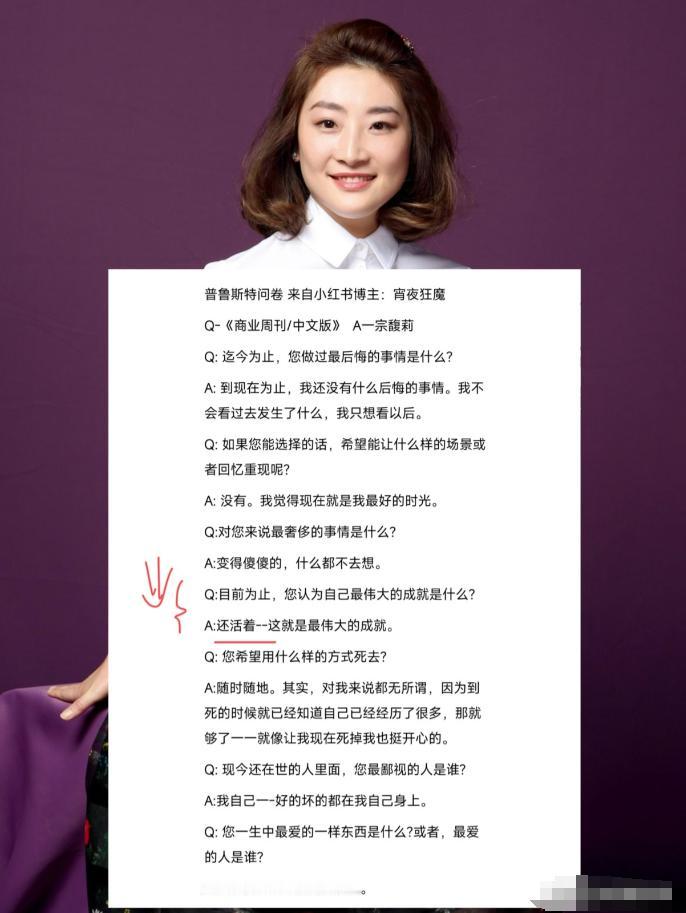 普鲁斯特问卷 来自小红书博主：宵夜狂魔
Q-《商业周刊/中文版》 A一宗馥莉
Q: 迄今为止，您做过最后悔的事情是什么？
A: 到现在为止，我还没有什么后悔的事情。我不
会看过去发生了什么，我只想看以后。
Q: 如果您能选择的话，希望能让什么样的场景或
者回忆重现呢？
A: 没有。我觉得现在就是我最好的时光。
Q:对您来说最奢侈的事情是什么？
A:变得傻傻的，什么都不去想。
Q:目前为止，您认为自己最伟大的成就是什么？
A:还活着--这就是最伟大的成就。
Q: 您希望用什么样的方式死去？
A:随时随地。其实，对我来说都无所谓，因为到
死的时候就已经知道自己已经经历了很多，那就
够了一一就像让我现在死掉我也挺开心的。
Q: 现今还在世的人里面，您最鄙视的人是谁？
A:我自己一-好的坏的都在我自己身上。
Q: 您一生中最爱的一样东西是什么?或者，最爱
的人是谁？